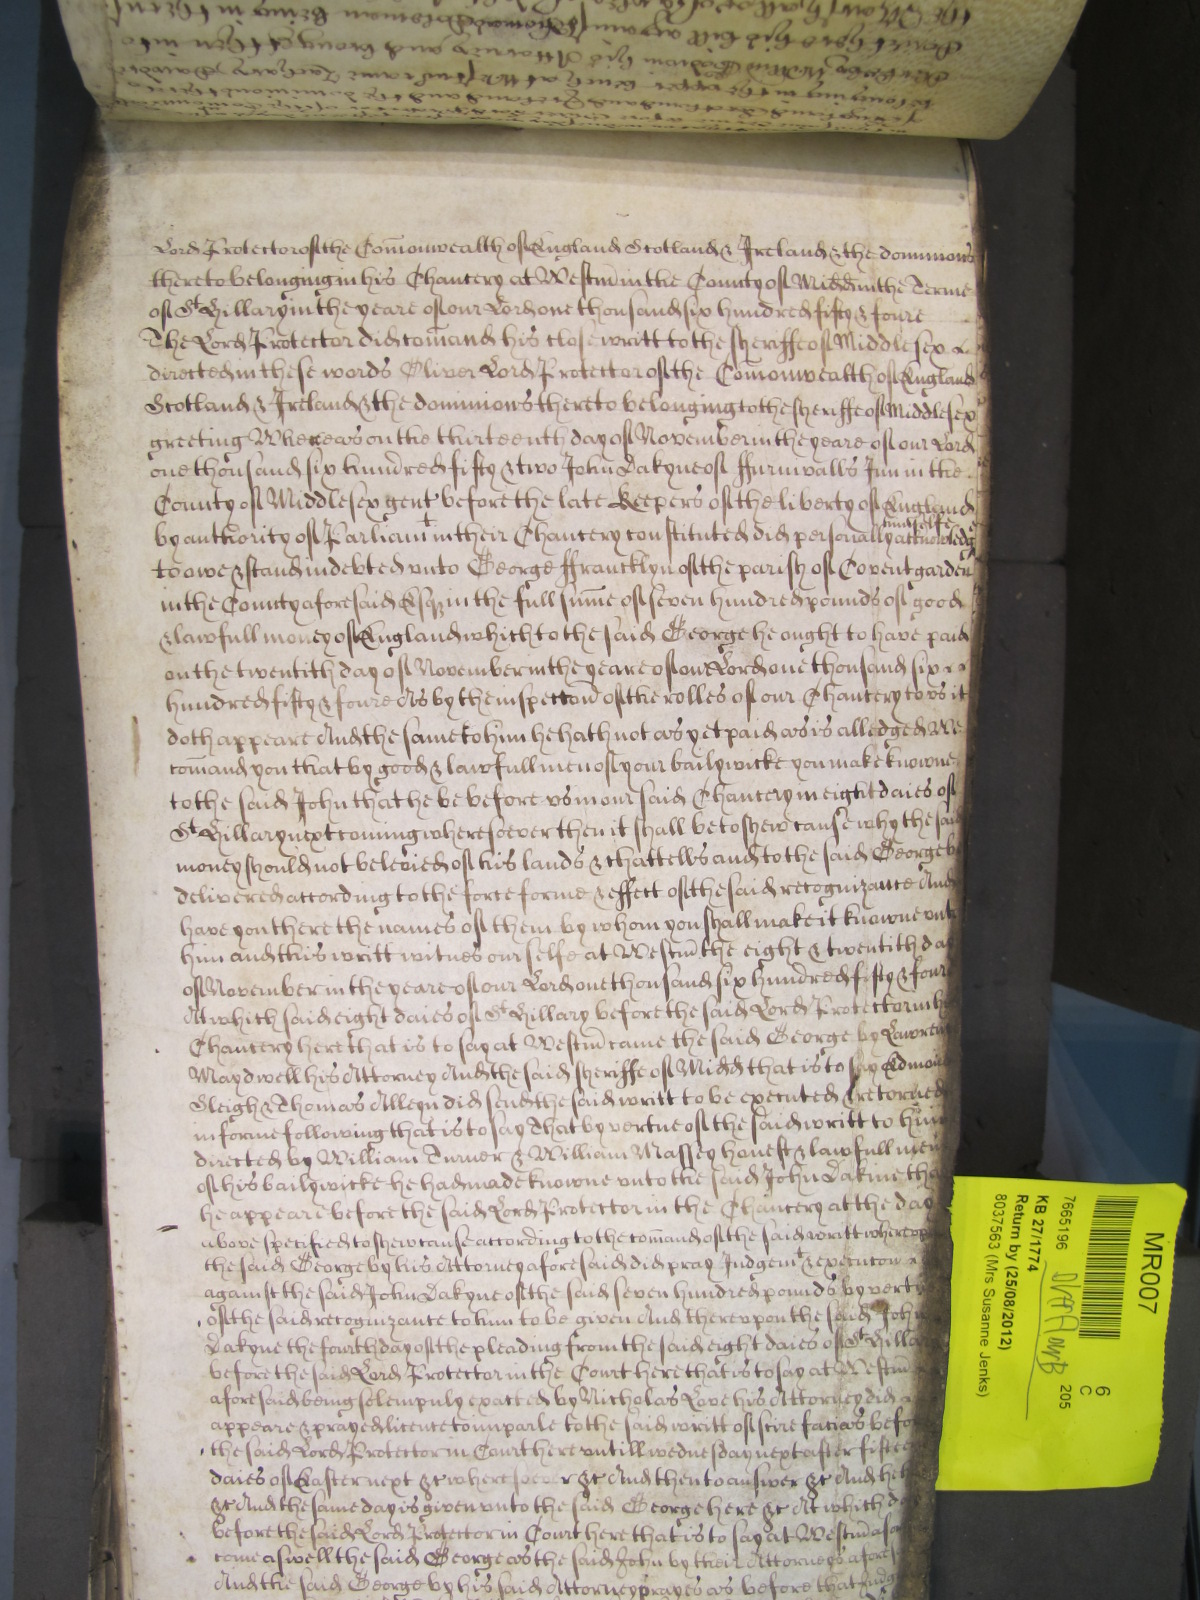 Lord Protector of the Com̄onwealth of England Scotland & Ireland & the dominions
thereto belonging in his Chancery at Westm̄ in the County of Midd̄ in the Terme
of St Hillary in the yeare of our Lord one thousand six hundred fifty & foure
The Lord Protector did com̄and his close writt to the sheriffe of Middlesex
directed in these words Oliver Lord Protector of the Com̄onwealth of England
Scotland & Ireland & the dominions thereto belonging to the sheriffe of Middlesex
greeting Whereas on the thirteenth day of November in the yeare of our Lord
one thousand six hundred fifty & two John Dakyne of ffurnivalls Inn in the
County of Middlesex gent before the late Keepers of the liberty of England
by authority of Parliamt in their Chancery constituted did personally acknowledg himselfe
to owe & stand indebted unto George ffrancklyn of the parish of Covent garden
in the County aforesaid Esqr in the full sum̄e of seven hundred pounds of good
& lawfull money of England which to the said George he ought to have paid
on the twentith day of November in the yeare of our Lord one thousand six
hundred fifty & foure As by the inspeccon̄ of the rolles of our Chancery to us it
doth appeare And the same to him he hath not as yet paid as is alledged We
com̄and you that by good & lawfull men of your bailywicke you make knowne
to the said John that he be before us in our said Chancery in eight daies of
St Hillary next coming wheresoever then it shall be to shew cause why the said
money should not be levied of his lands & chattells and to the said George
delivered according to the force forme & effect of the said recognizance And
have you there the names of them by whom you shall make it knowne unto
him and this writt witnes our selfe at Westm̄ the eight & twentith day
of November in the yeare of our Lord one thousand six hundred fifty & foure
At which said eight daies of St Hillary before the said Lord Protector in his
Chancery here that is to say at Westm̄ came the said George by Lawrence
Maydwell his Attorney And the said sheriffe of Midd̄ that is to say Edmond
Sleigh & Thomas Alleyn did send the said writt to be executed & retorned
in forme following that is to say That by vertue of the said writt to him
directed by William Turner & William Massey honest & lawfull men
of his bailywicke he had made knowne unto the said John Dakine that
he appeare before the said Lord Protector in the Chancery at the day
above specified to shew cause according to the com̄and of the said writt whereupon
the said George by his Attorney aforesaid did pray Judgemt & execucon
against the said John Dakyne of the said seven hundred pounds by vertue
of the said recognizance to him to be given And thereupon the said John
Dakyne the fourth day of the pleading from the said eight daies of St Hillary
before the said Lord Protector in the Court here that is to say at Westm̄
aforesaid being solempnly exacted by Nicholas Love his Attorney did
appeare & prayed licence to imparle to the said writt of scire facias before
the said Lord Protector in Court here untill wednesday next after fifteen
daies of Easter next &c wheresoever &c And then to answer &c And
&c And the same day is given unto the said George here &c At which day
before the said Lord Protector in Court here that is to say at Westm̄
come aswell the said George as the said John by their Attorneys
And the said George by his said Attorney prayes as before that
MR007
7665196
6
C
205
KB 27/1774
Return by (25/08/2012)
8037563 (Mrs Susanne Jenks)